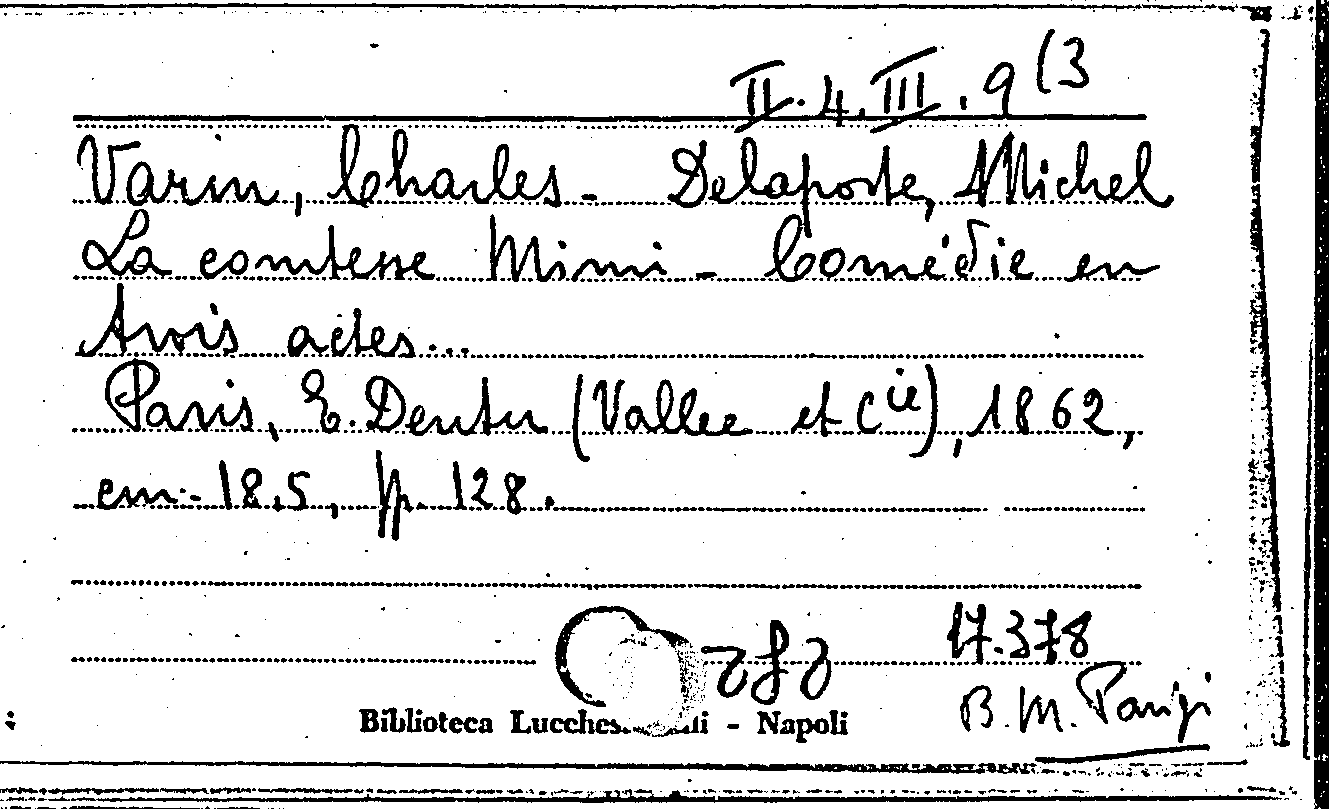 II.4.III.9(3
Varin, Charles - Delaporte, Michel
La comtesse Mimi - Comédie en
trois actes...
Paris, E. Dentu (Vallee et Cie), 1862,
cm. 18,5, pp. 128.
17.378
Biblioteca - Napoli
B. M. Parigi